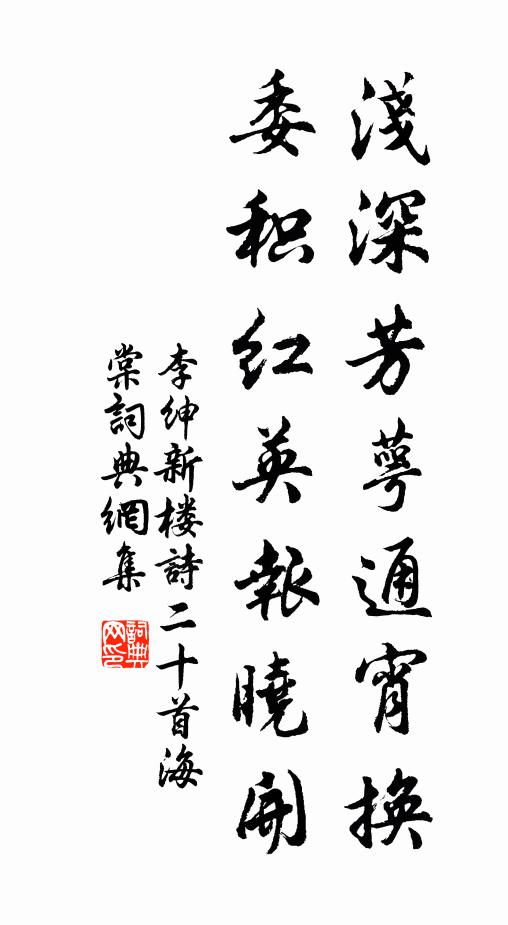 淺深芳萼通宵換
委积紅英報曉開
李紳新楼詩二十首海
棠詞典網集
詞典
网印